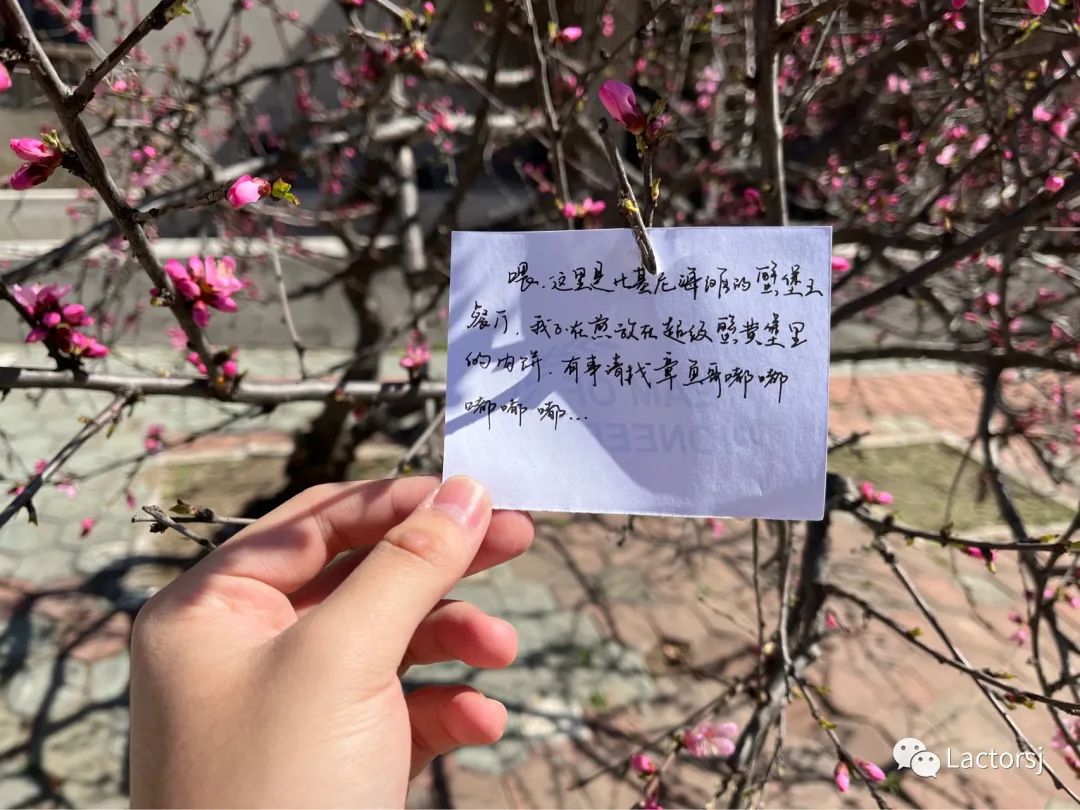 喂,这里是比基尼海滩的蟹堡王
餐厅,我正在煎放在超级蟹黄堡里
的肉饼,有事请找章鱼哥嘟嘟
嘟嘟嘟...
Lactorsj